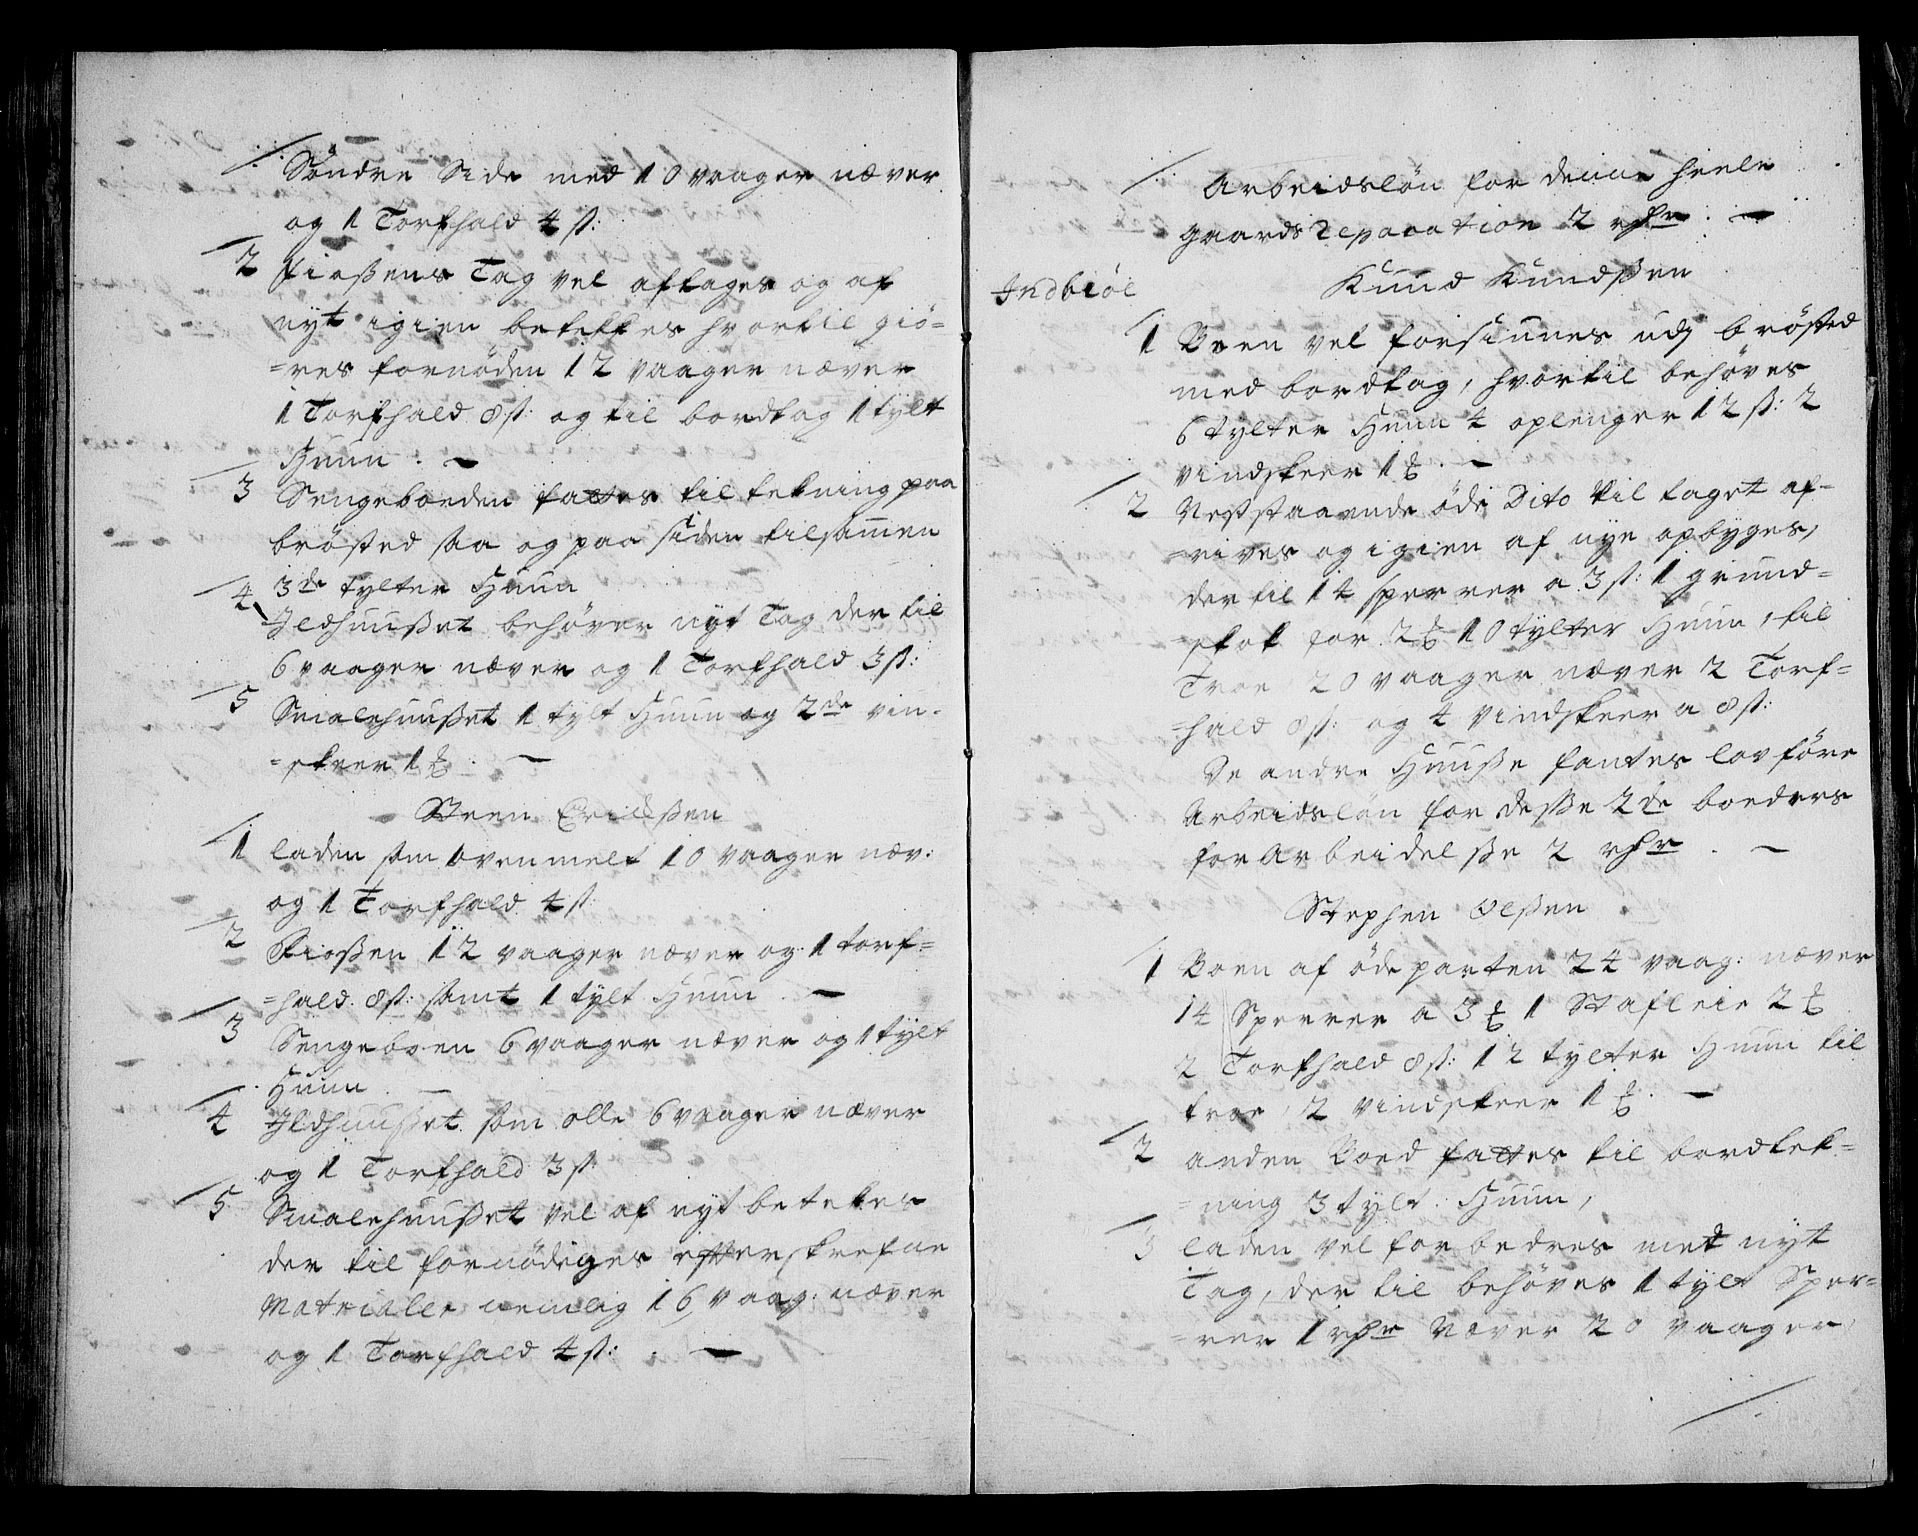 Søndre Side med 10 vaager næver
og 1 Torfhald 4 ß:
2 Fiøßens Tag vel aftages og af
nyt igien betekkes hvortil giö-
=res fornöden 12 vaager næver
1 Torfhald 8 ß: og til bordtag 1 tylt
Huun . —
3 Sengeboeden fattes til tekning paa
brøsted saa og paa siden tilsam̄en
3de tylter Huun
4 Ildhuußet behøver nyt Tag der til
6 vaager næver og 1 Torfhald 3 ß:
5 Smalehuußet 1 tylt Huun og 2de vin-
=skeer 1 ℔ . —
Steen Erichßen
1 laden som ovenmelt 10 vaager næv:
og 1 Torfhald 4 ß
2 Fioßen 12 vaager næver og 1 torf=
=hald 8 ß: samt 1 tylt Huun . —
3 Sengeboen 6 vaager næver og 1 tylt
Huun . —
4 Ildhuußet som olle 6 vaager næver
og 1 Torfhald 3 ß
5 Smalehuußet vel af nyt betekes
der til fornödiges efterskrefne
Matrialer nemlig 16 vaag: næver
og 1 Torfhald 4 ß: . —
Arbeidsløn for denne heele
gaards Reparation 2 rhdr . —
Indbiöe
Knud Knudßen
1 Boen vel forsiunes udj brösted
med bordtag, hvortil behöves
6 tylter Huun 4 oplenger 12 ß: 2
vindskeer 1 ℔ . —
2 Nestsstaaende öde Dito til taget af-
=rives og igien af nye opbyges,
der til 14 sperrer a 3 ß: 1 grund=
=stok for 2 ℔ 10 tylter Huun, til
Troe 20 vaager næver 2 Torf=
=hald 8 ß: og 4 vindskeer a 8 ß:
De andre Huuße fantes lovføre
Arbeidsløn for deße 2de boeders
forArbeidelße 2 rhdr . —
Stephen Olßen
1 Boen af öde parten 24 vaag: næver
14 Sperrer a 3 ℔ 1 Stafleie 2 ℔
2 Torfhald 8 ß: 12 tylter Huun til
troe, 2 vindskeer 1 ℔ . —
2 anden Boed fattes til bordtek=
=ning 3 tylt: Huun,
3 laden vel forbedres med nyt
Tag, der til behöves 1 tylt Sper=
=rer 1 rhdr Næver 20 vaager,